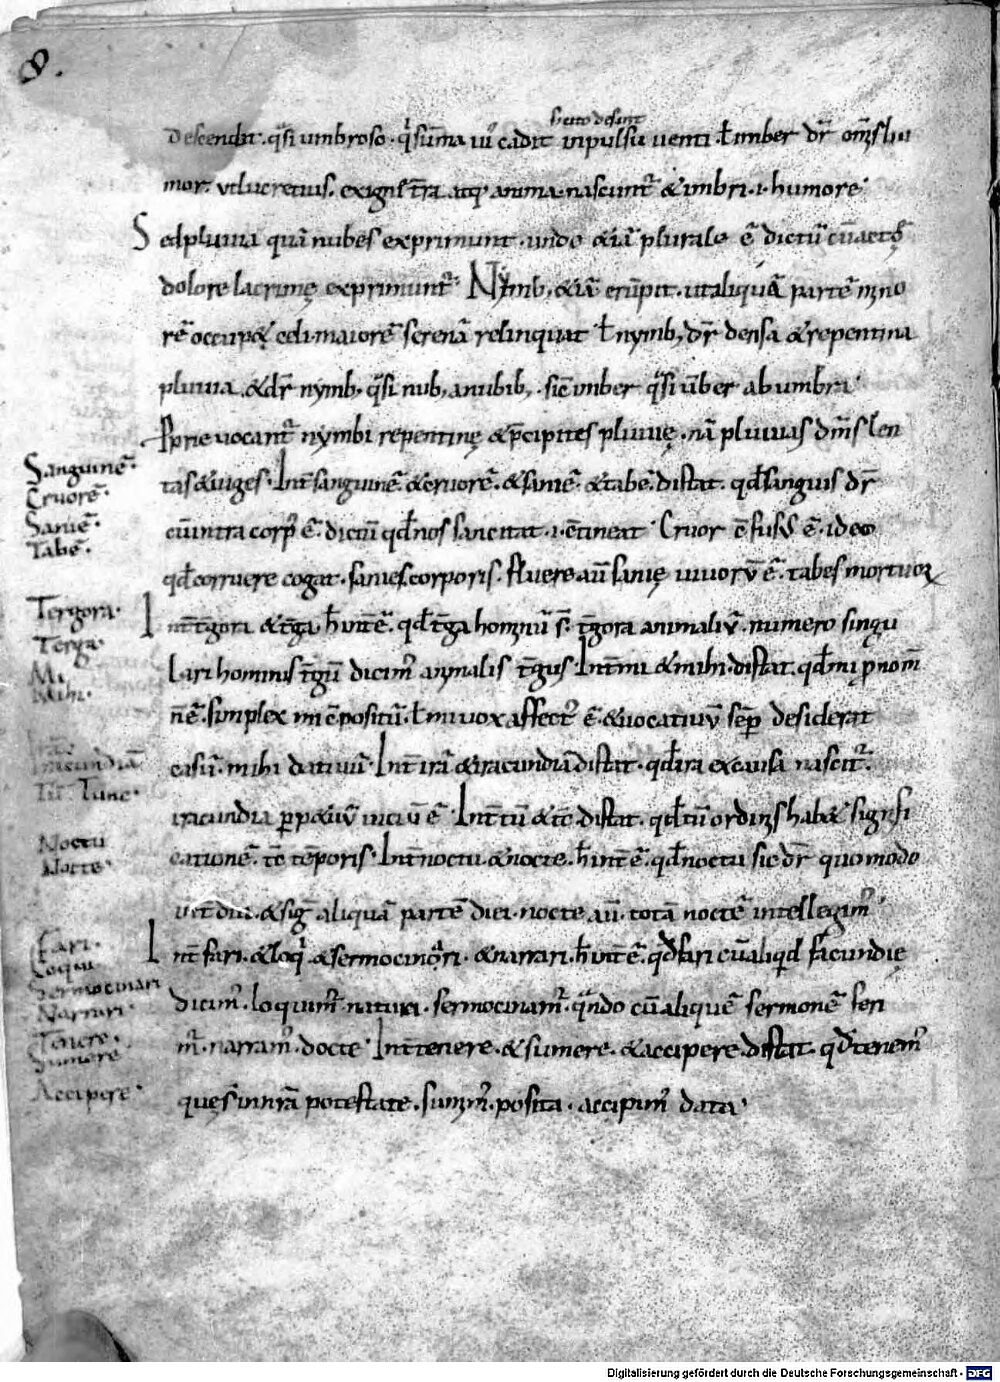 8.
s. cito desunt
descendit. q̅si umbroso. q̅ suma ui cadit inpulsu uenti. ł imber dr̅ om̅s hu
mor. ut lucretius. ex igni t̅ra atq; anima nascunt̅ & imbri .i. humore.
Sed pluuia qua̅ nubes exprimunt. unde &ia̅ plurale e̅ dictu̅
dolore lacrimę exprimunt̅. Nymb; &ia̅ eru̅pit. ut aliqua̅ parte̅ mino
re̅ occup& celi. maiore̅ serena̅ relinquat ł nymb; dr̅ densa & repentina
pluuia. & dr̅ nymb; q̅si nub; a nubib;. sic imber q̅si u̅ber ab umbra.
Pprie uocant̅ nymbi repentinę & p̅cipites pluuię. na̅ pluuias dm̅s len
tas & iuges. Int̅ sanguine̅. & cruore̅. & sanie̅. & tabe̅. distat. qd̅ sanguis dr̅
cu̅ intra corp; e̅. dictu̅ qd̅ nos sancitat .i. c̅tineat. Cruor c̅ fusu̅ e̅. ideo
qd̅ corruere cogat. sanies corporis. fluere au̅ sanię uiuoru̅ e̅. tabes mortuoꝝ
Int̅ t̅gora & t̅ga h̅ int̅e̅. qd̅ t̅ga hominu̅ s̅. t̅gora animaliu̅. numero singu
lari hominis t̅gu̅ dicim; animalis t̅gus. Int̅ mi & mihi distat. qd̅ mi p̅nom̅
n̅ e̅. simplex ni c̅positu̅. ł mi uox affect; e̅. & uocatiuu̅ semp̅ desiderat
casu̅. mihi datiuu̅. Int̅ ira̅ & iracundia̅ distat. qd̅ ira ex causa nascit̅.
iracundia perp&uu̅ uiciu̅ e̅. Int̅ tu̅ & tc̅ distat. qd̅ tu̅ ordinis hab& signifi
catione̅. tc̅ te̅poris. Int̅ noctu. & nocte. h̅ int̅e̅. qd̅ noctu sic dr̅ quomodo
diu. & sig̅ aliqua̅ parte̅ diei. nocte au̅. tota̅ nocte̅ intellegim;
Int̅ fari. & loq̅. & sermocinari. & narrari. h̅ int̅e̅. qd̅ fari cu̅ aliqd̅ facundię
dicim;. loquim̅ naturę. sermocinam̅. q̅ndo cu̅ alique̅ sermone̅ seri
m̅. narram; docte. Int̅ tenere. & sumere. & accipere. distat. qd̅ tenem;
quę s̅ in nr̅a potestate. sumim;. posita. accipim; data.
Sanguine̅.
Cruore̅.
Sanie̅.
Tabe̅.
Tergora.
Terga.
Mi.
Mihi.
Iracundia̅
Tu̅ Tunc.
Noctu
Nocte.
Fari.
Loqui.
Sermocinari
Narrari.
Tenere.
Sumere
Accipere.
Digitalisierung gefördert durch die Deutsche Forschungsgemeinschaft - DFG